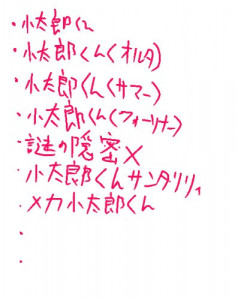 ・小太郎くん
・小太郎くん(オルタ)
・小太郎くん(サマー)
・小太郎くん(フォーリナー)
・謎の隠密X
・小太郎くんサンタリリィ
・メカ小太郎くん
・
・